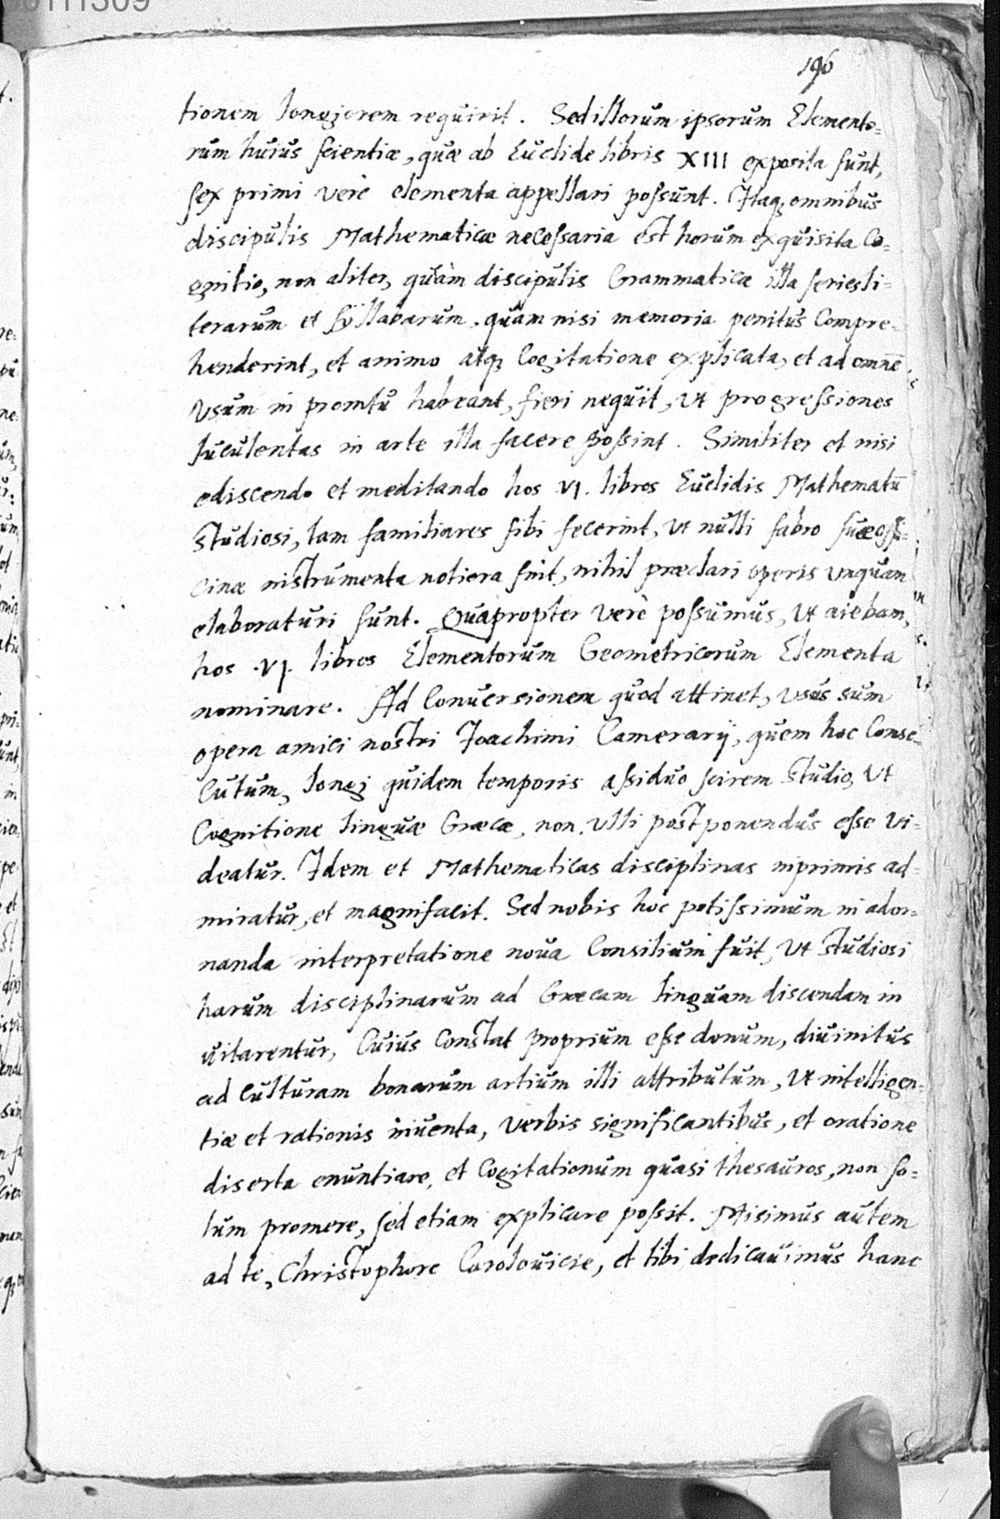 196
tionem longiorem requirit. Sed illorum ipsorum Elemento-
rum huius scientiæ, quæ ab Euclide libris XIII exposita sunt,
sex primi verè elementa appellari possunt. Itaq; omnibus
discipulis Mathematicæ necessaria est horum exquisita co-
gnitio, non aliter, quàm discipulis Grammaticæ illa series li-
terarum et syllabarum, quàm nisi memoria penitus compre-
henderint, et animo atq; cogitatione explicata, et ad omnē
usum in promtu habeant, fieri nequit, ut progressiones
luculentas in arte illa facere possint. Similiter et nisi
ediscendo et meditando hos .VI. libros Euclidis Mathematū
studiosi, tam familiares sibi fecerint, ut nulli fabro suæ offi-
cinæ instrumenta notiora sint, nihil præclari operis unquam
elaboraturi sunt. Quapropter verè possumus, ut aiebam,
hos .VI. libros Elementorum Geometricorum Elementa
nominare. Ad conversionem quod attinet, usus sum
opera amici nostri Joachimi Camerarij, quem hoc conse-
cutum, longi quidem temporis assiduo scirem studio, ut
cognitione linguæ Græcæ, non ulli postponendus esse vi-
deatur. Idem et Mathematicas disciplinas inprimis ad-
miratur, et magnifacit. Sed nobis hoc potissimum in ador-
nanda interpretatione noua consilium fuit, ut studiosi
harum disciplinarum ad Græcam linguam discendam in
uitarentur, cuius constat proprium esse donum, diuinitus
ad culturam bonarum artium illi attributum, ut intelligen-
tiæ et rationis inuenta, verbis significantibus, et oratione
diserta enuntiare, et cogitationum quasi thesauros, non so-
lum promere, sed etiam explicare possit. Misimus autem
ad te, Christophore Carolouicie, et tibi dedicauimus hanc